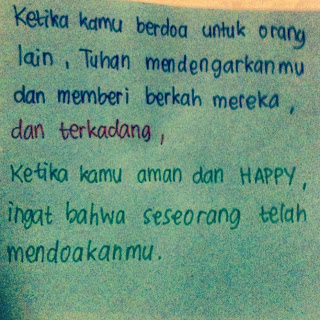 Ketika kamu berdoa untuk orang
lain, Tuhan mendengarkanmu
dan memberi berkah mereka,
dan terkadang,
Ketika kamu aman dan HAPPY,
ingat bahwa seseorang telah
mendoakanmu.